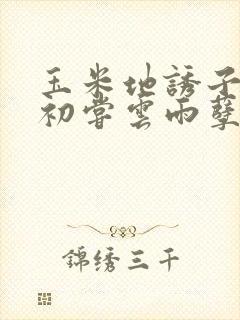 玉米地誘子
初嘗雲雨孽
錦绣三千